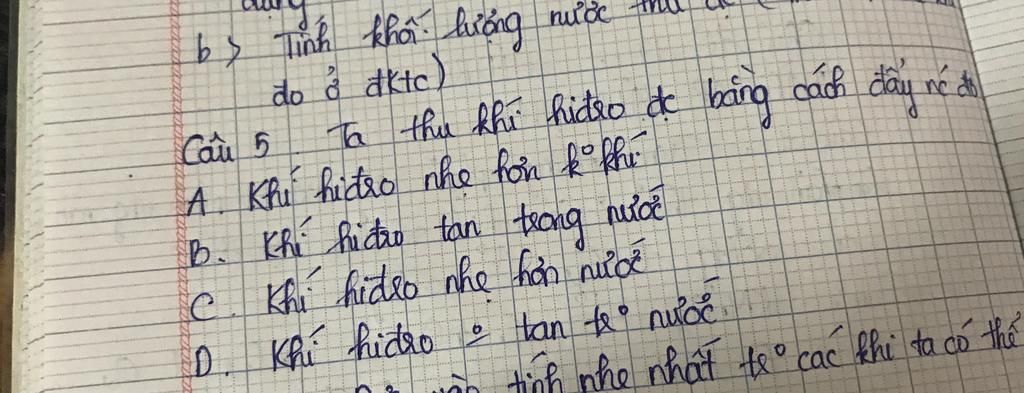 b> Tính khối lượng nước thu
đo ở đktc)
Câu 5. Ta thu khí hiđro đc bằng cách đẩy nc do
A. Khí hiđro nhẹ hơn kº khí
B. Khí hiđro tan trong nước
C. Khí hiđro nhẹ hơn nước
D. Khí hiđro º tan trº nước.
tính nhẹ nhất trº các khí ta có thể